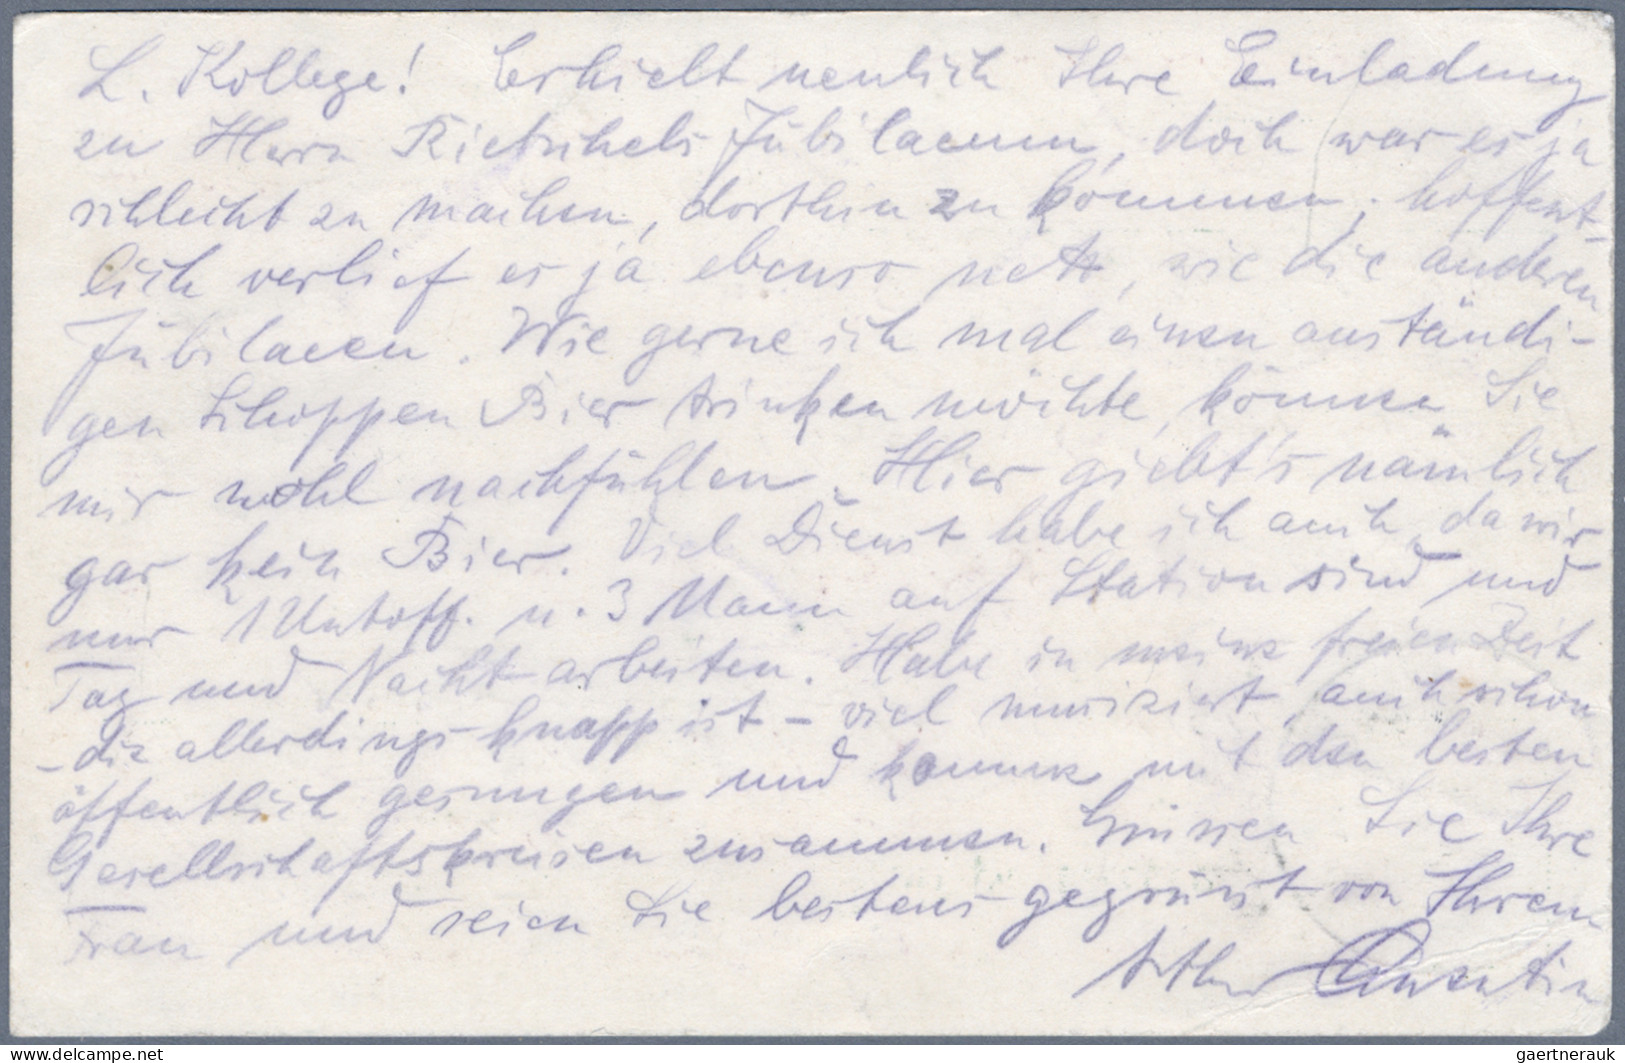 L. Kollege! Erhielt neulich Ihre Einladung
zu Herrn Rietschels Jubilaeum, doch war es ja
schlecht zu machen, dorthin zu kommen, hoffent-
lich verlief es ja ebenso nett, wie die anderen
Jubilaeen. Wie gerne ich mal einen anständi-
gen Schoppen Bier trinken möchte, können Sie
mir wohl nachfühlen. Hier giebt's nämlich
gar kein Bier. Viel Dienst habe ich auch, da wir
nur 1 Untoff. u. 3 Mann auf Station sind und
Tag und Nacht arbeiten. Habe in meine freien Zeit
- die allerdings knapp ist - viel musiziert, auch schon
öffentlich gesungen und komme mit den besten
Gesellschaftskreisen zusammen. Grüssen Sie Ihre
Frau und seien Sie bestens gegrüsst von Ihrem
Arthur Quentin
www.delcampe.net
gaertnerauk